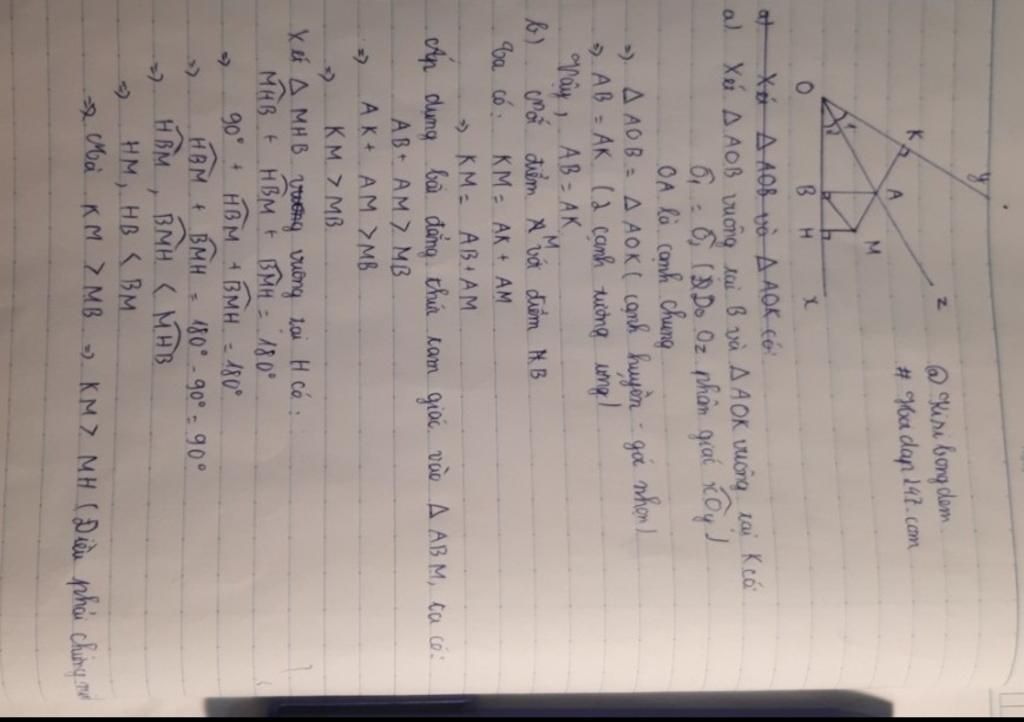 @ Kiribongdem
# Hoidap247.com
y
K
A
z
M
O
1
2
B
H
x
a) Xét Δ AOB và Δ AOK có:
a) Xét Δ AOB vuông tại B và Δ AOK vuông tại K có:
OA là cạnh chung
⇒ Δ AOB = Δ AOK ( cạnh huyền - góc nhọn)
⇒ AB = AK (2 cạnh tương ứng)
Vậy, AB = AK
b) Nối điểm M với điểm B
Ta có: KM = AK + AM
⇒ KM = AB + AM
Áp dụng bất đẳng thức tam giác vào Δ ABM, ta có:
AB + AM > MB
⇒ AK + AM > MB
⇒ KM > MB
Xét Δ MHB vuông tại H có:
MHB + HBM + BMH = 180°
⇒ 90° + HBM + BMH = 180°
⇒ HBM + BMH = 180° - 90° = 90°
⇒ HBM, BMH < MHB
⇒ HM, HB < BM
⇒ Mà KM > MB ⇒ KM > MH (Điều phải chứng